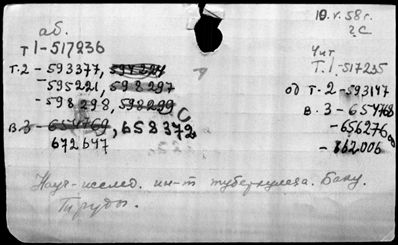 аб.
т 1-517236
т.2 - 593377, 594224
- 595221, 598297
- 598298, 598299
в.3 - 654769, 658372
672647
10.V.58 г.
2С
Чит
Т.1-517235
од т.2-593147
в.3-654768
-656276
-762006
Науч-исслед. ин-т туберкулеза. Баку.
Труды.